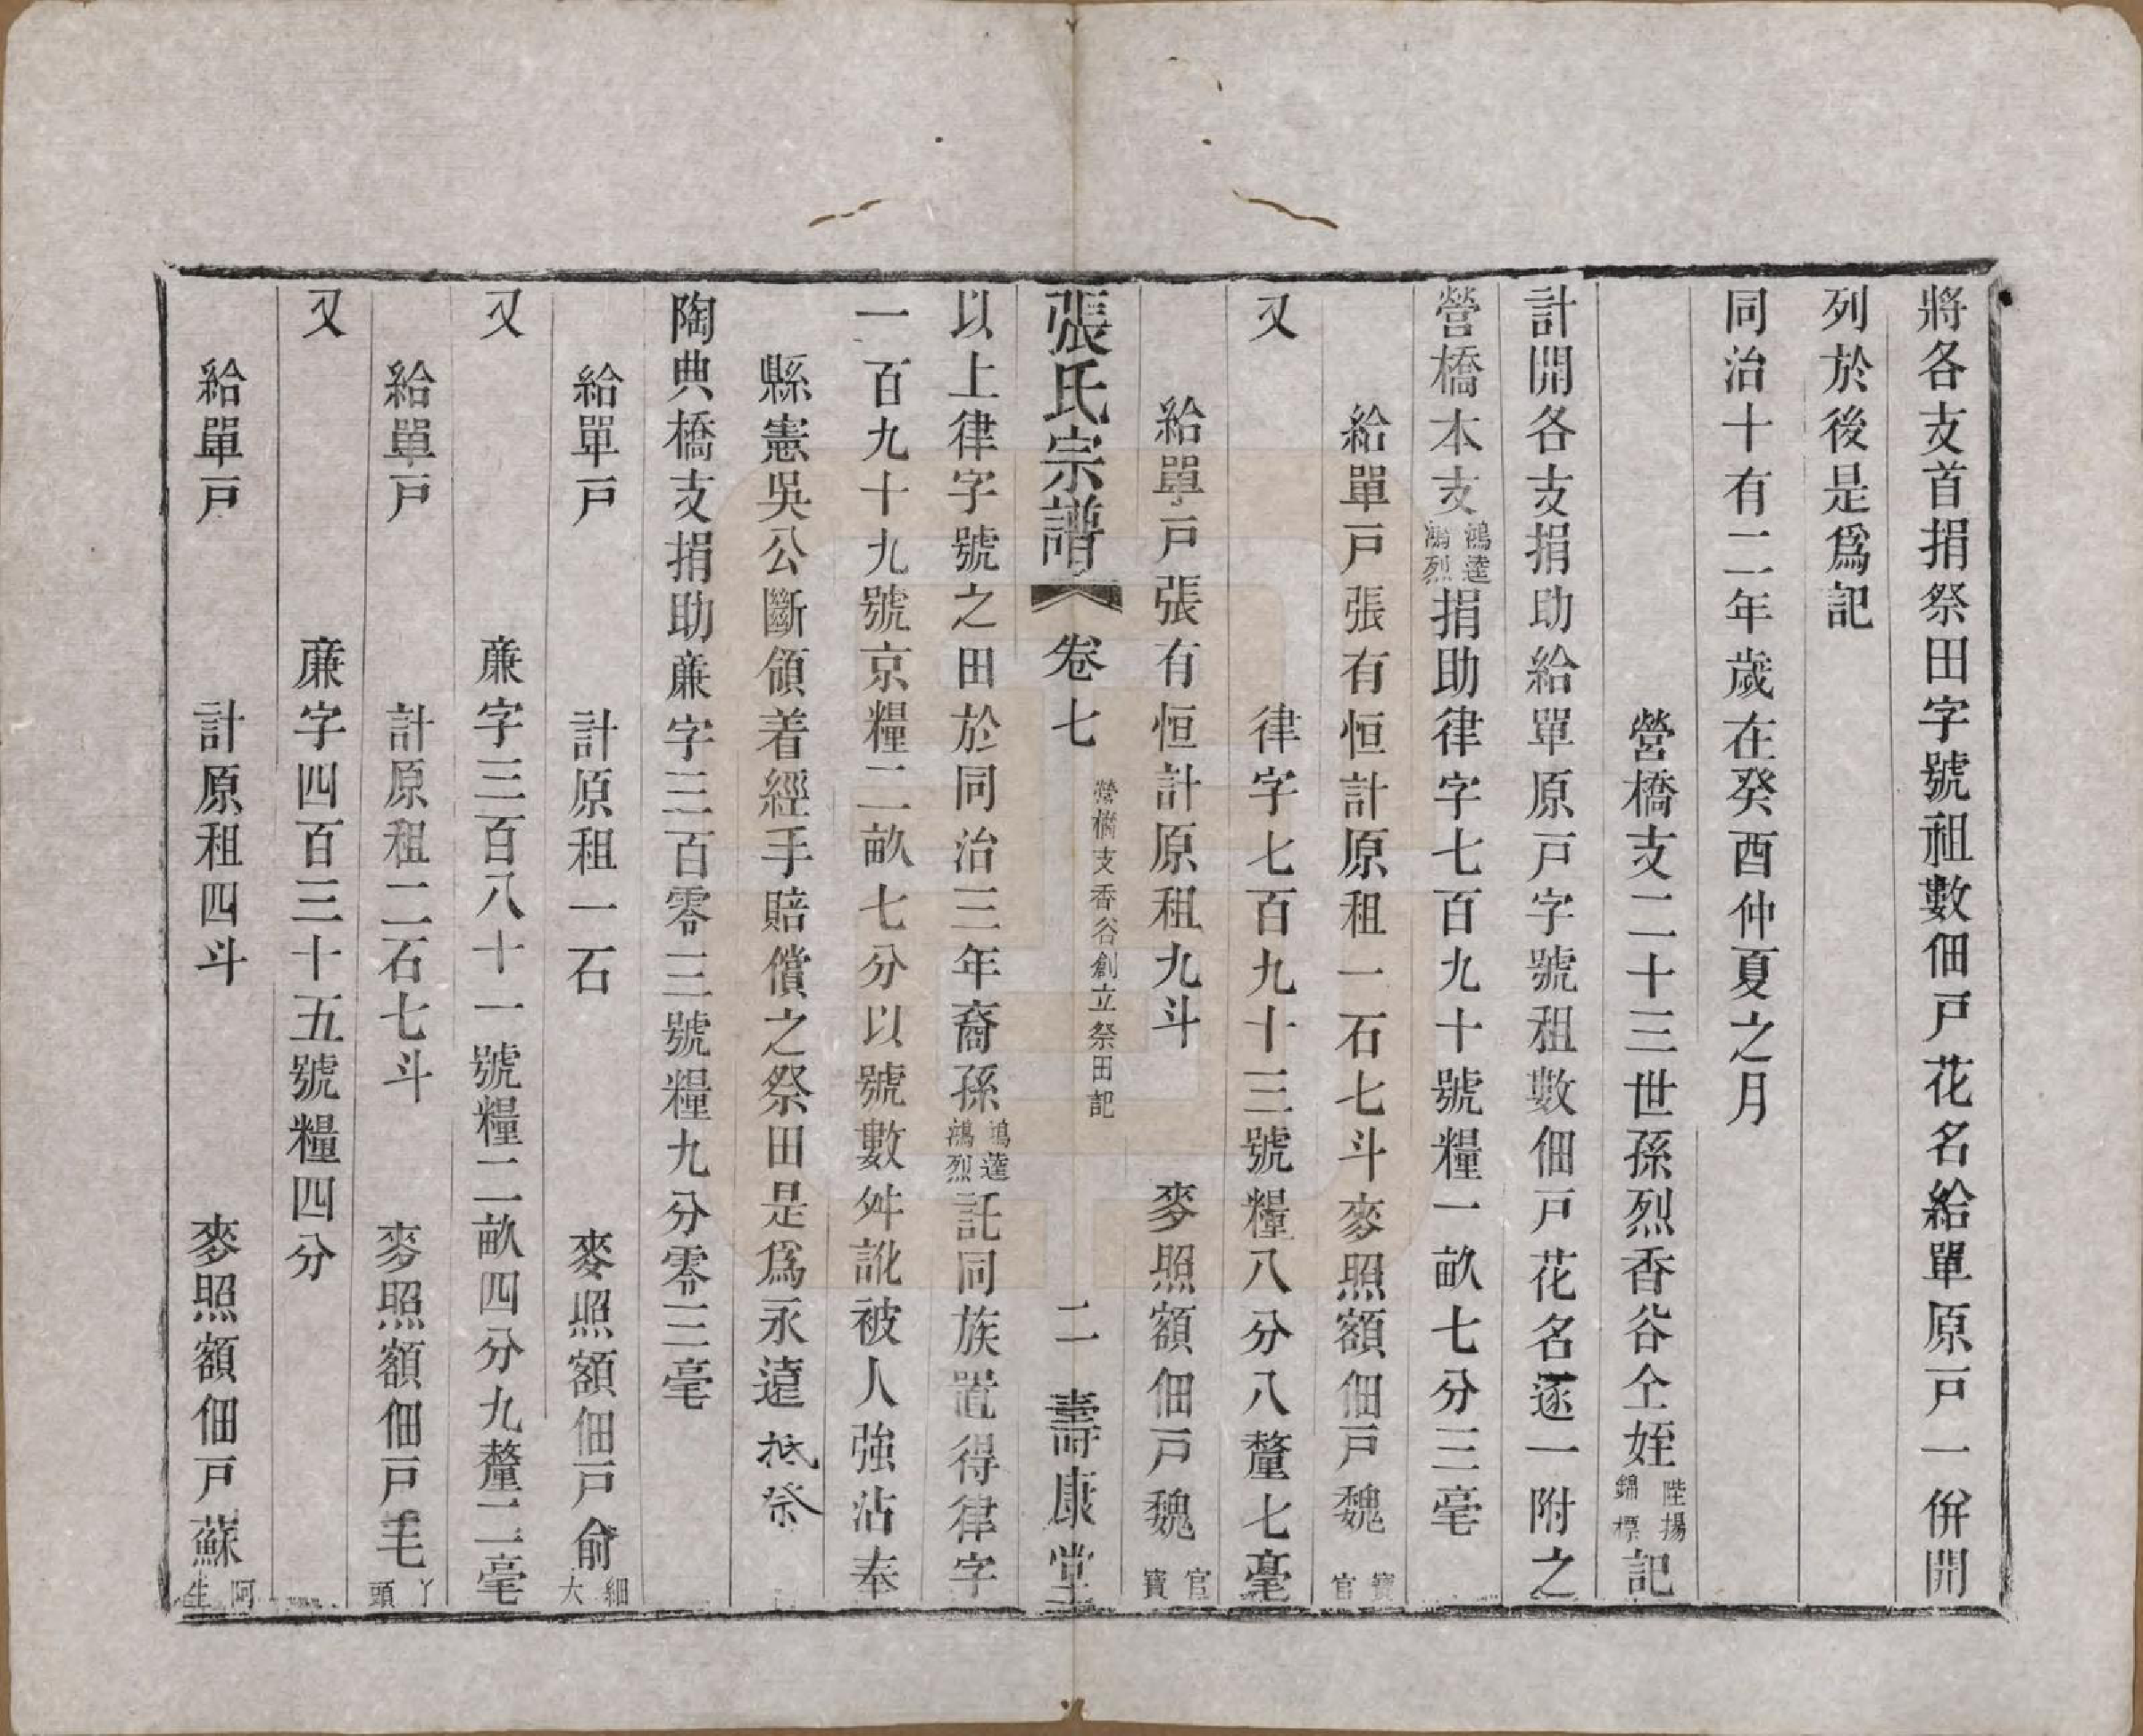 將各支首捐祭田字號祖數佃戸花名給單原戸一併開
列於後是爲記
同治十有二年歲在癸酉仲夏之月
營橋支二十三世孫烈香谷仝姪陞揚錦標記
計開各支捐助給單原戸字號租數佃戸花名逐一附之
營橋本支鴻逵鴻烈捐助律字七百九十號糧一畝七分三毫
給單戸張有恒計原租一石七斗麥照額佃戸魏寶官
又 律字七百九十三號糧八分八釐七毫
給單戸張有恒計原租九斗 麥照額佃戸魏官寶
張氏宗譜 卷七 營橋支香谷創立祭田記 二 壽康堂
以上律字號之田於同治三年裔孫鴻逵鴻烈託同族置得律字
一百九十九號京糧二畝七分以號數舛訛被人強沾奉
縣憲吳公斷領着經手賠償之祭田是爲永遠祇祭
陶典橋支捐助蔴字三百零三號糧九分零三毫
給單戸 計原租一石 麥照額佃戸俞細大
又 蔴字三百八十一號糧二畝四分九釐二毫
給單戸 計原租二石七斗 麥照額佃戸毛丫頭
又 蔴字四百三十五號糧四分
給單戸 計原租四斗 麥照額佃戸蘇阿生